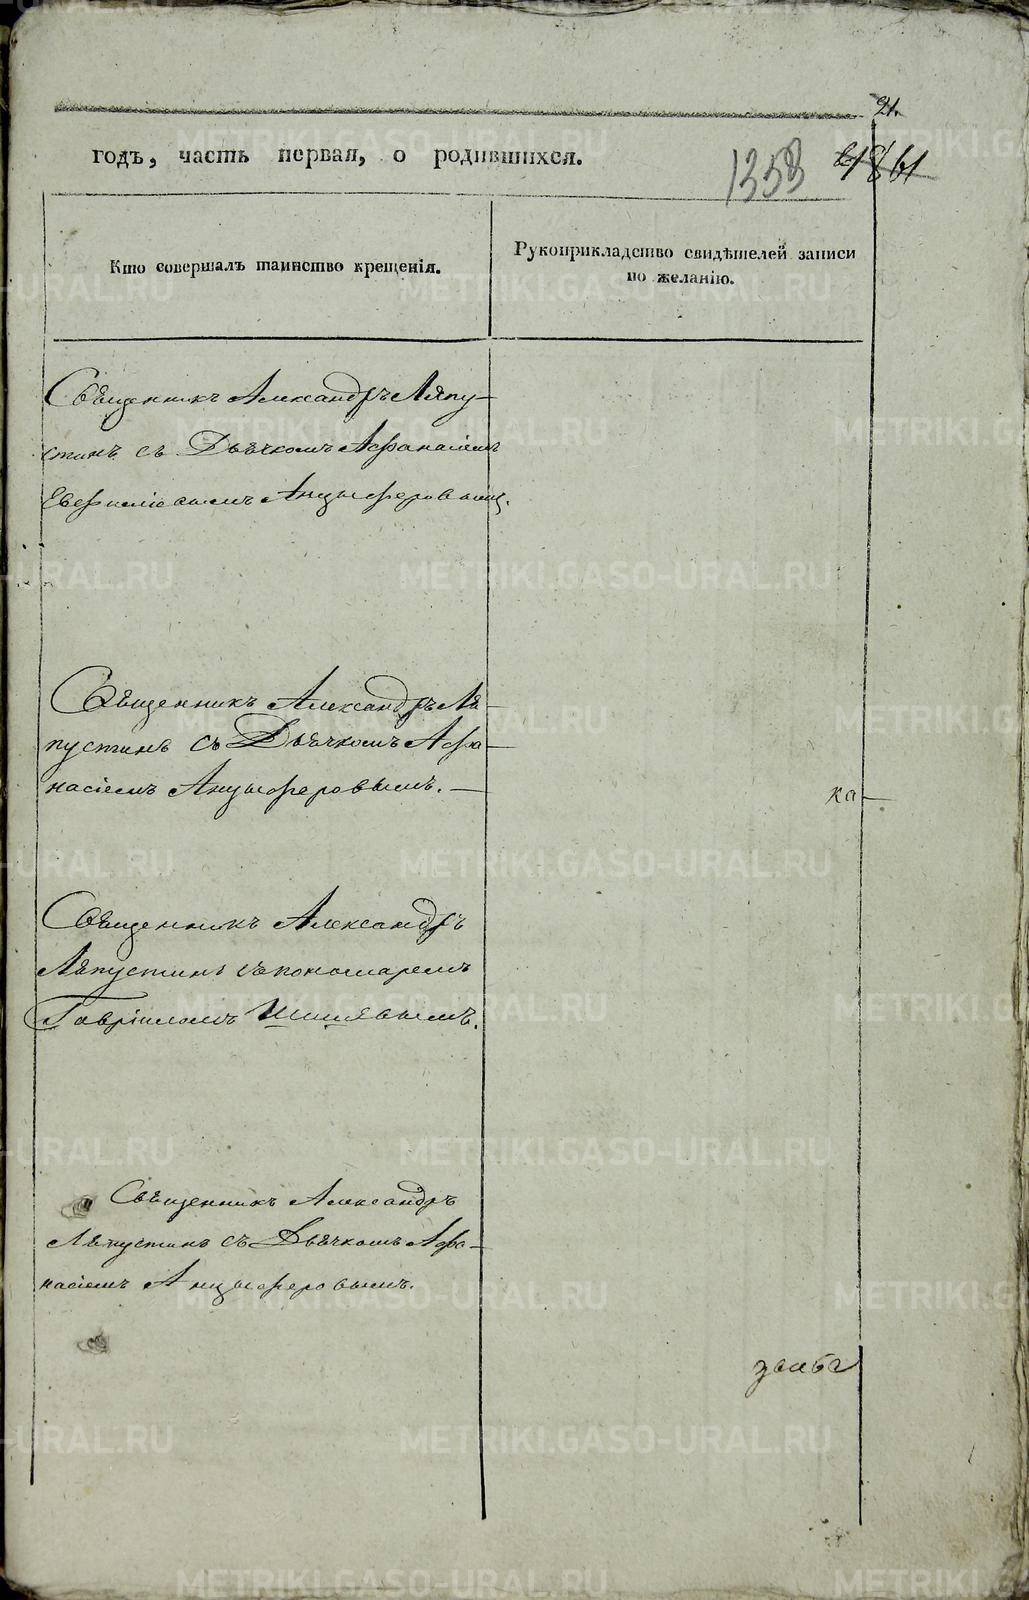 21.
годъ, часть первая, о родившихся.
1358
Кто совершалъ таинство крещенія.
Рукоприкладство свидѣтелей записи
по желанію.
Священникъ Александръ Ляпу-
стинъ съ Дьячкомъ Афанасіемъ
Анцыферовымъ.
Священникъ Александръ Ля-
пустинъ съ Дьячкомъ Афа-
насіемъ Анцыферовымъ.
ка
Священникъ Александръ
Ляпустинъ съ пономаремъ
Гавріиломъ
Священникъ Александръ
Ляпустинъ съ Дьячкомъ Афа-
насіемъ Анцыферовымъ.
METRIKI.GASO-URAL.RU